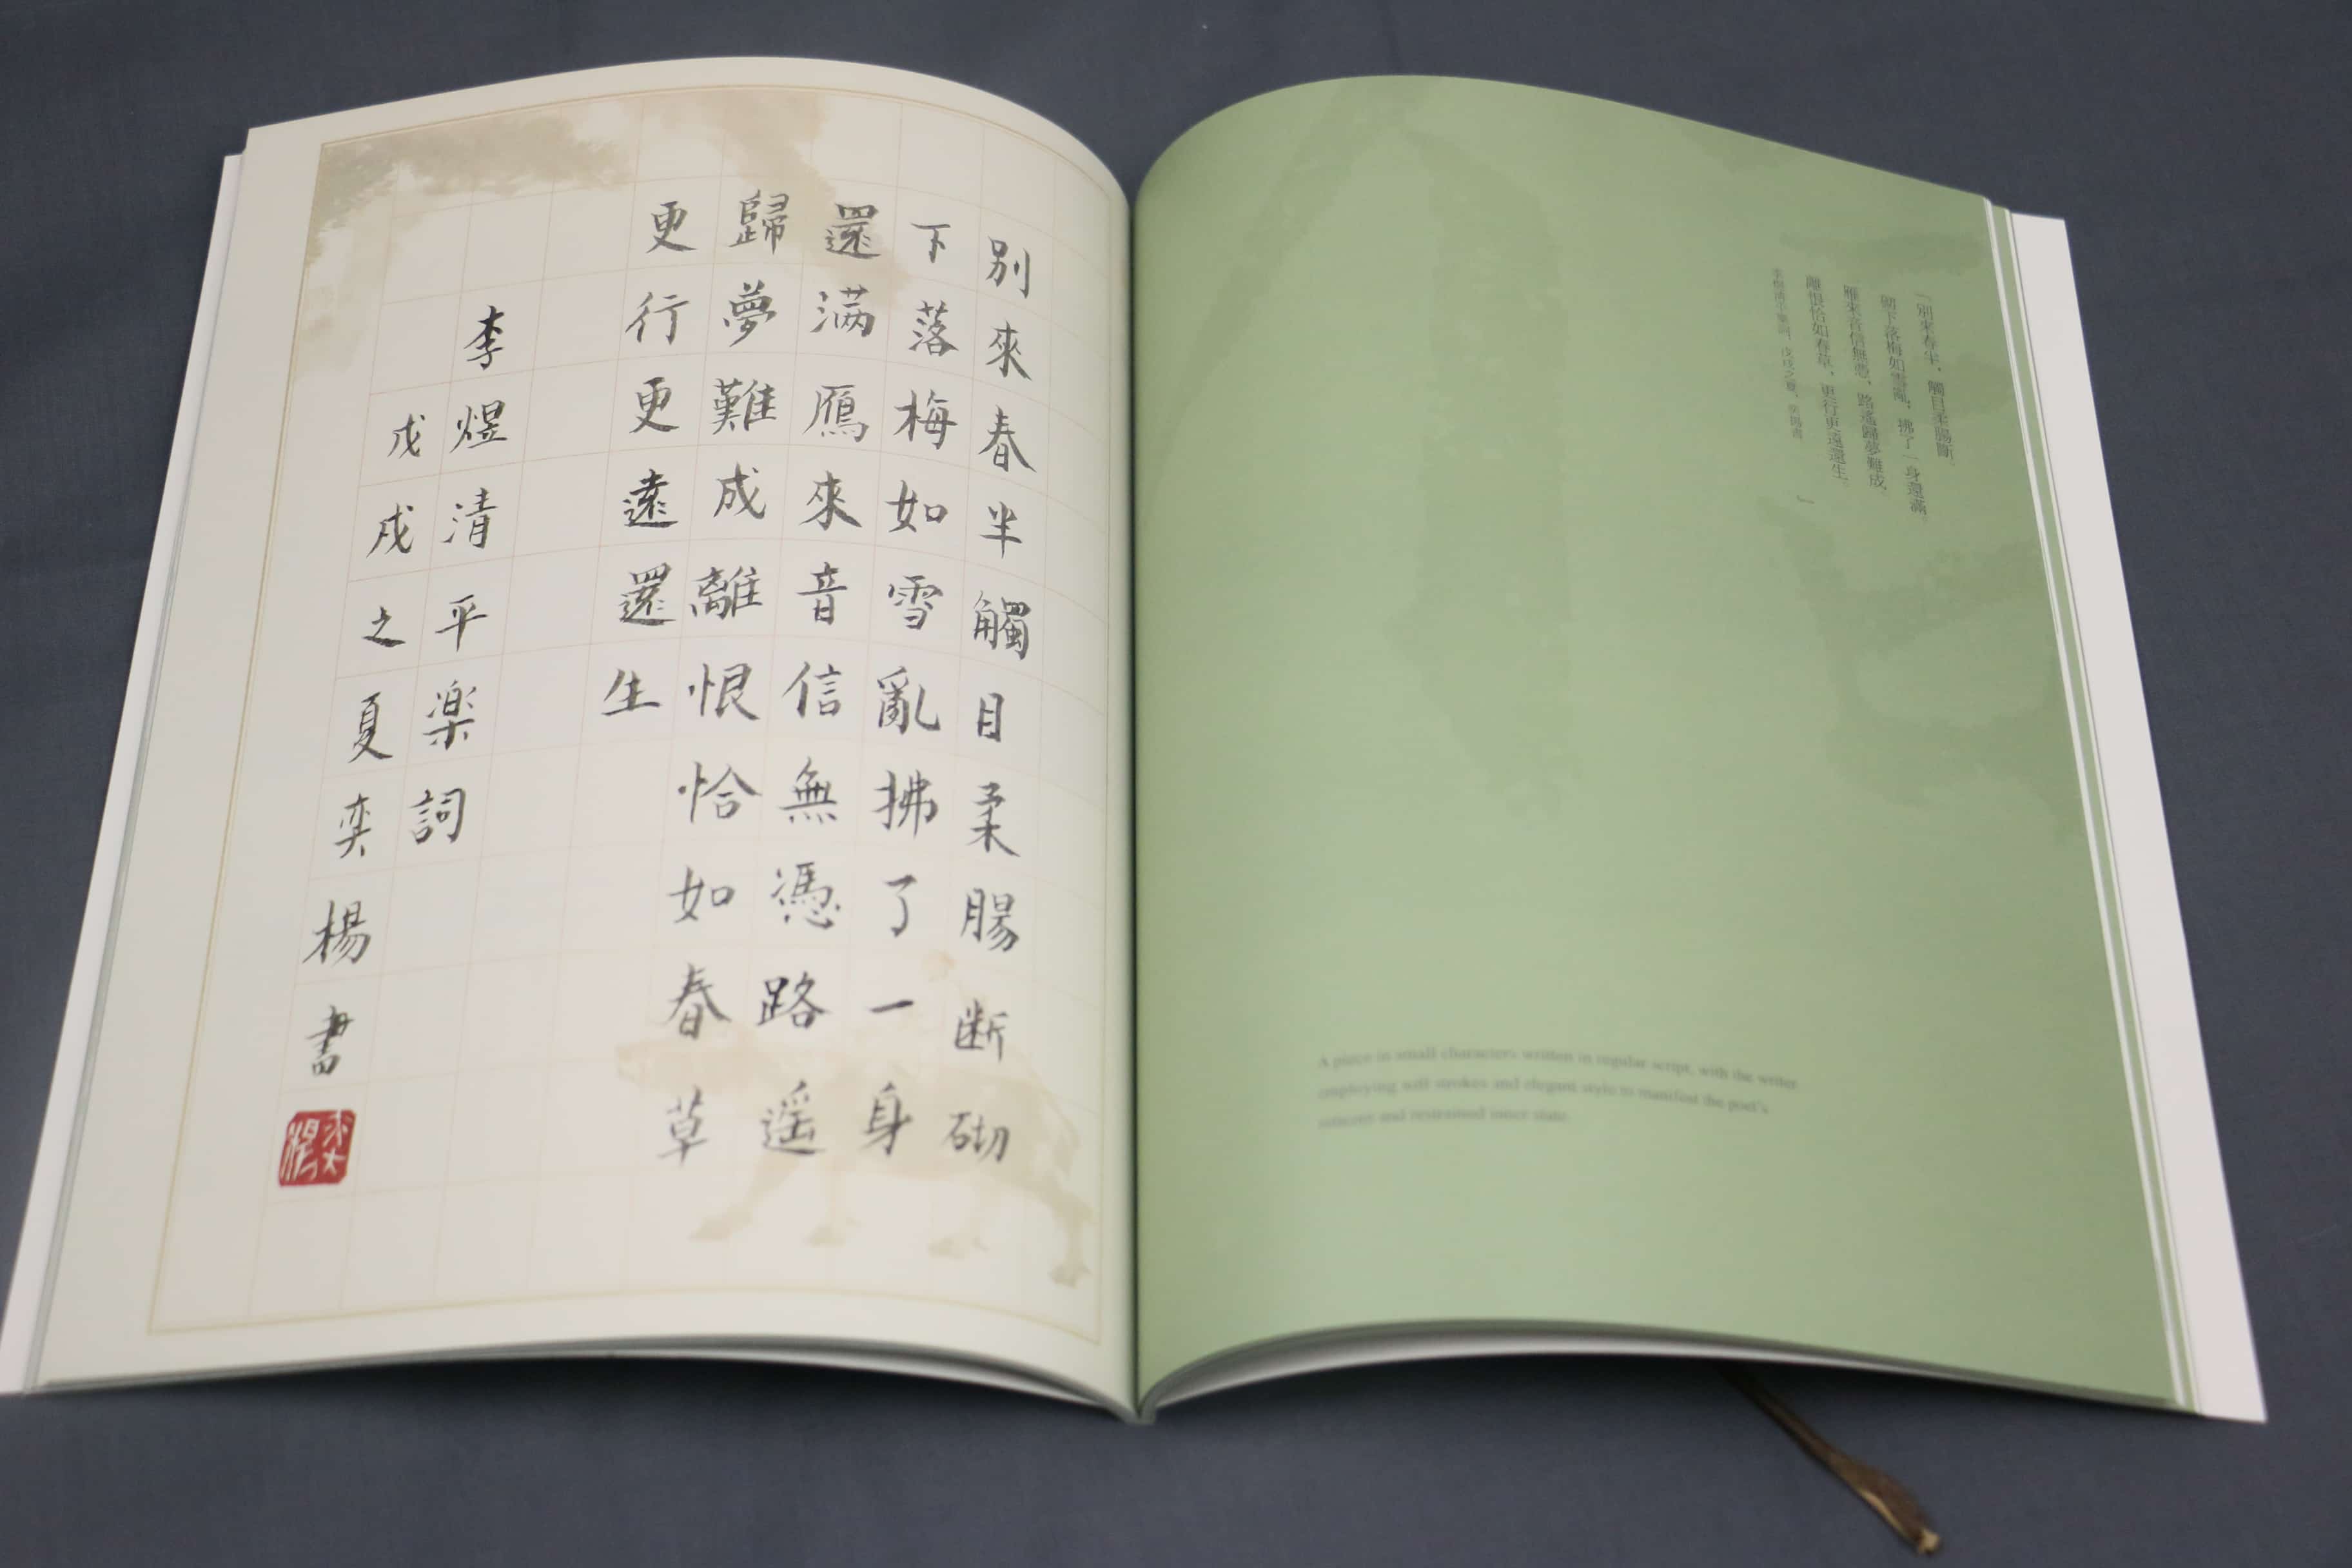 別來春半觸目柔腸断砌
下落梅如雪亂拂了一身
還满鴈來音信無憑路遥
歸夢難成離恨恰如春草
更行更遠還生
李煜清平楽詞
戊戌之夏奕楊書
奕楊
「別來春半，觸目柔腸斷。
砌下落梅如雪亂，拂了一身還滿。
雁來音信無憑，路遙歸夢難成。
離恨恰如春草，更行更遠還生。」
李煜清平樂詞，戊戌之夏，奕楊書
A piece in small characters written in regular script, with the writer
employing soft strokes and elegant style to manifest the poet's
and restrained inner state.